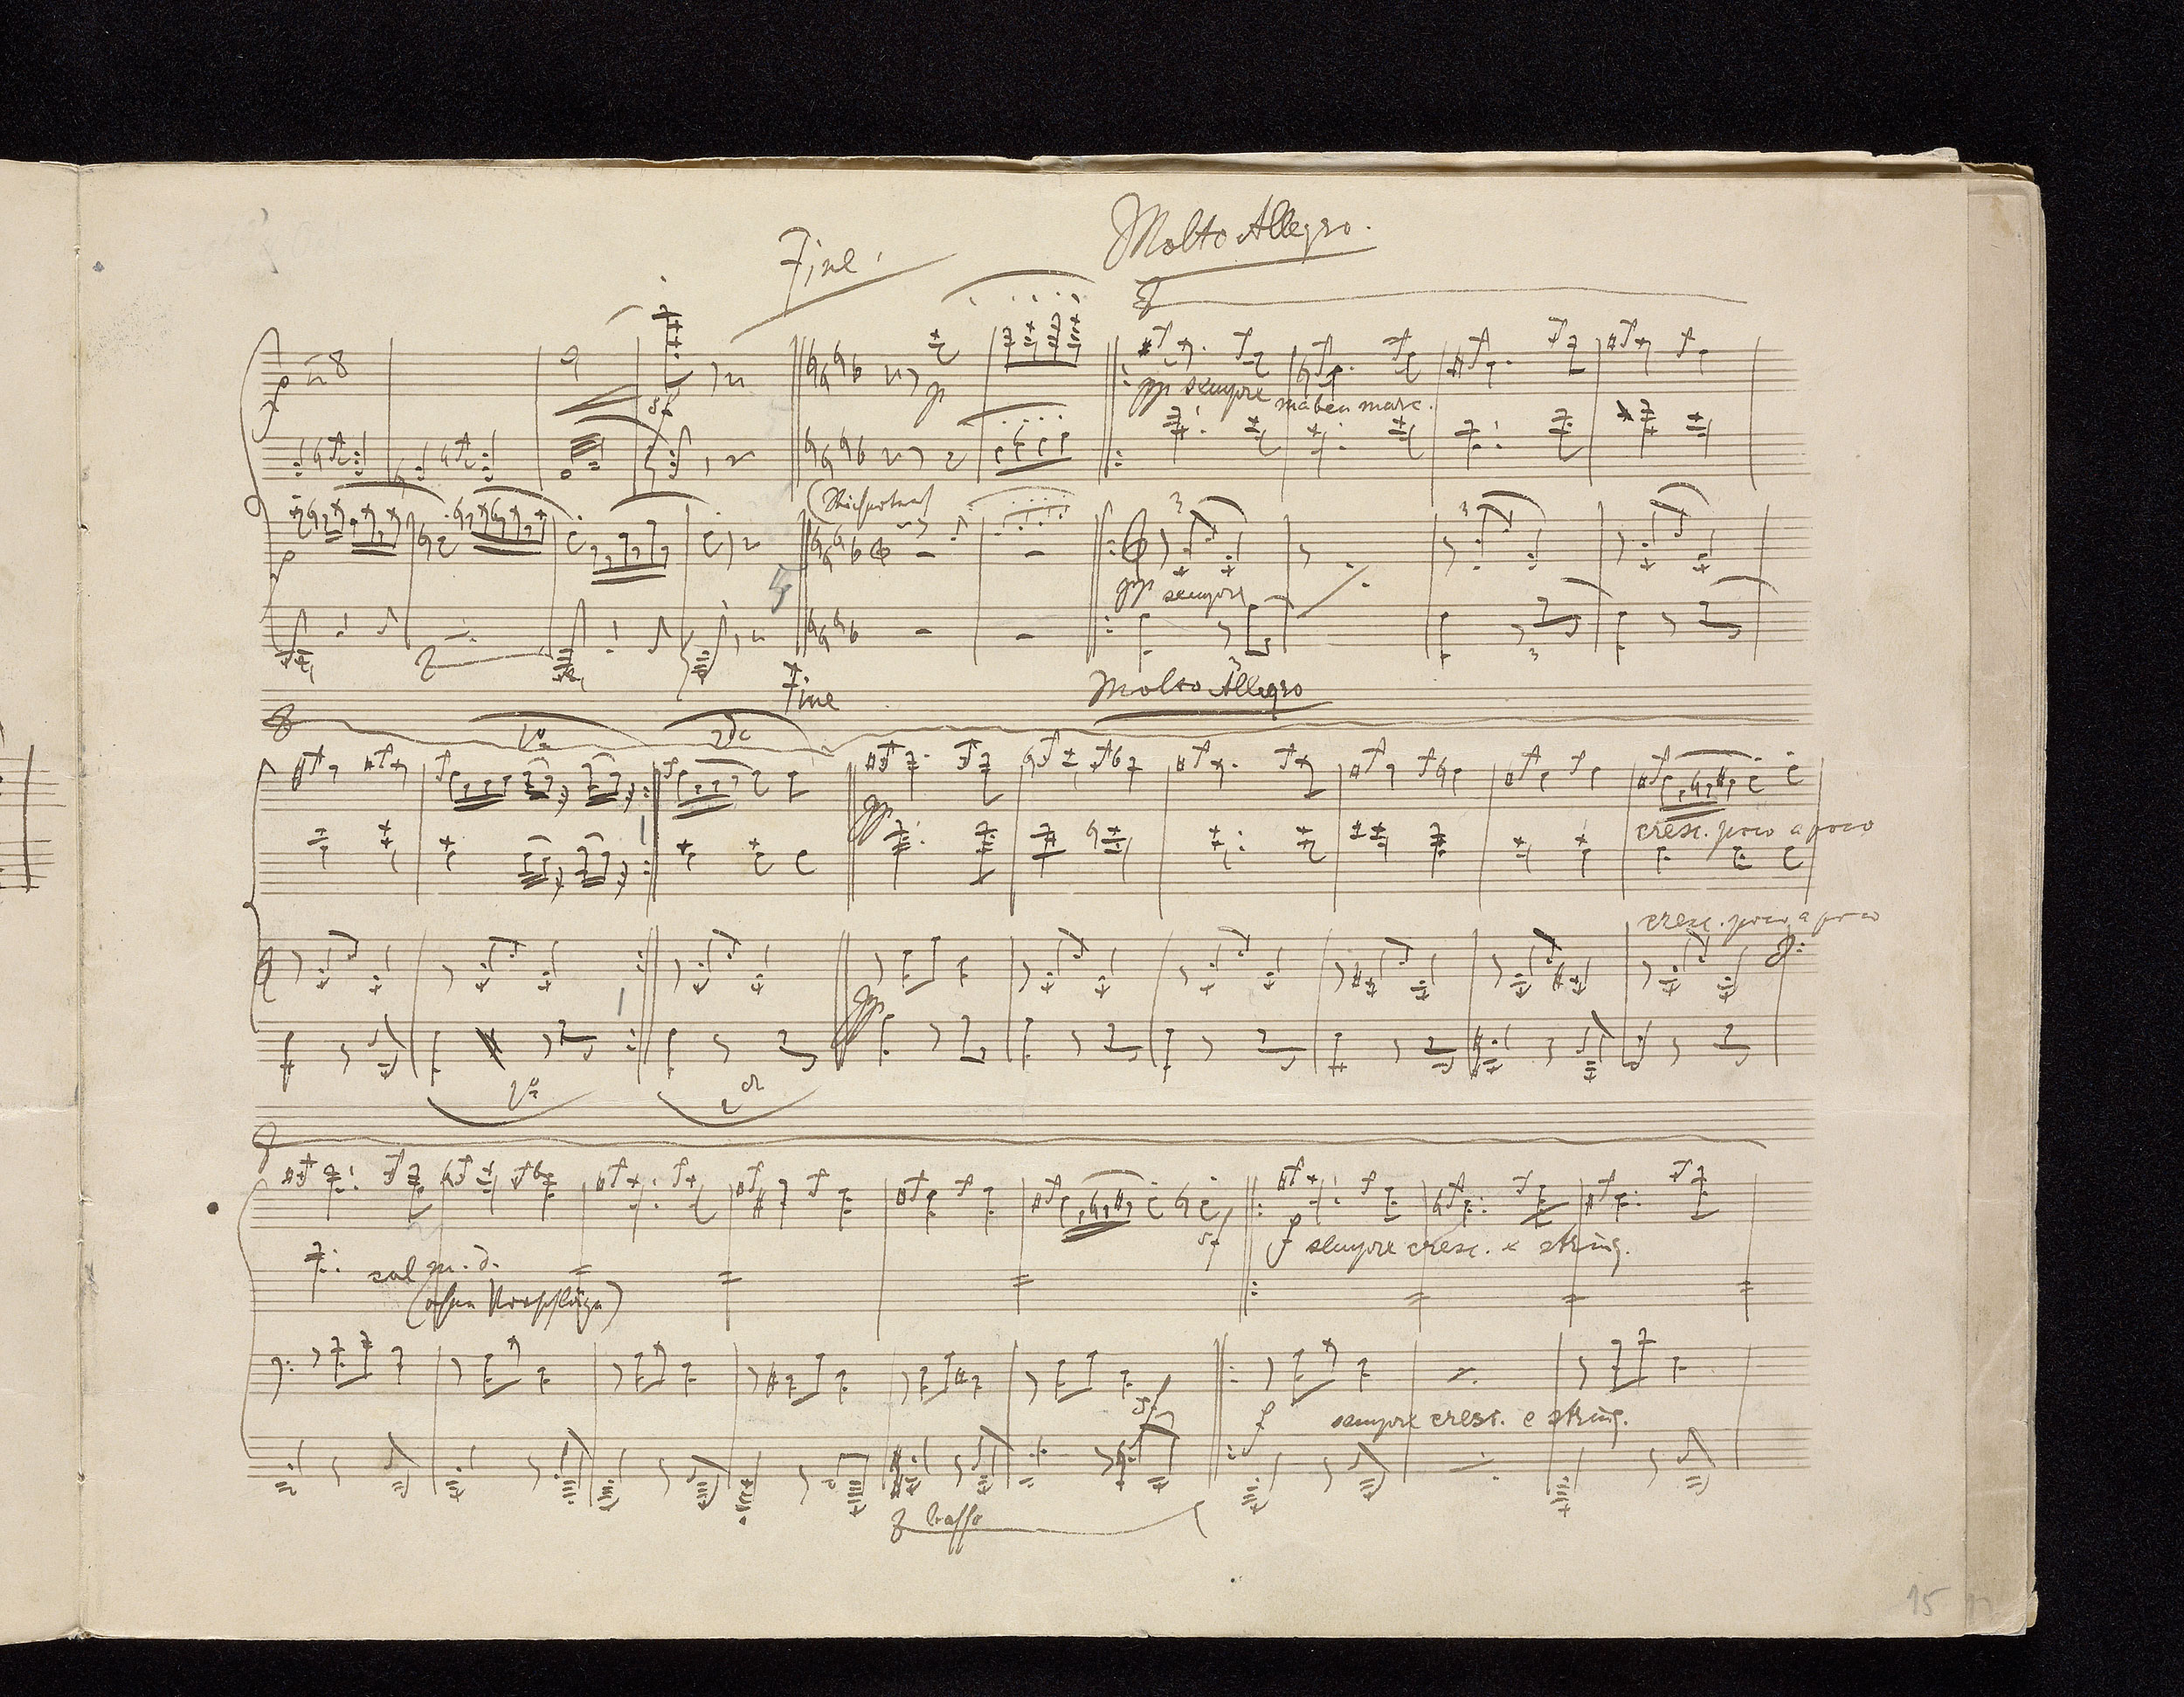 Fine.
Molto Allegro.
8
p
sf
p
pp sempre
ma ben marc.
p
3
3
pp sempre
3
3
Fine
Molto Allegro
8
1ª
2da
pp
cresc. poco a poco
cresc. poco a poco
pp
1ª
2da
8
sf
f sempre cresc. e string.
col m. d.
(ohne Vorschläge)
sf
f sempre cresc. e string.
8 basso
15